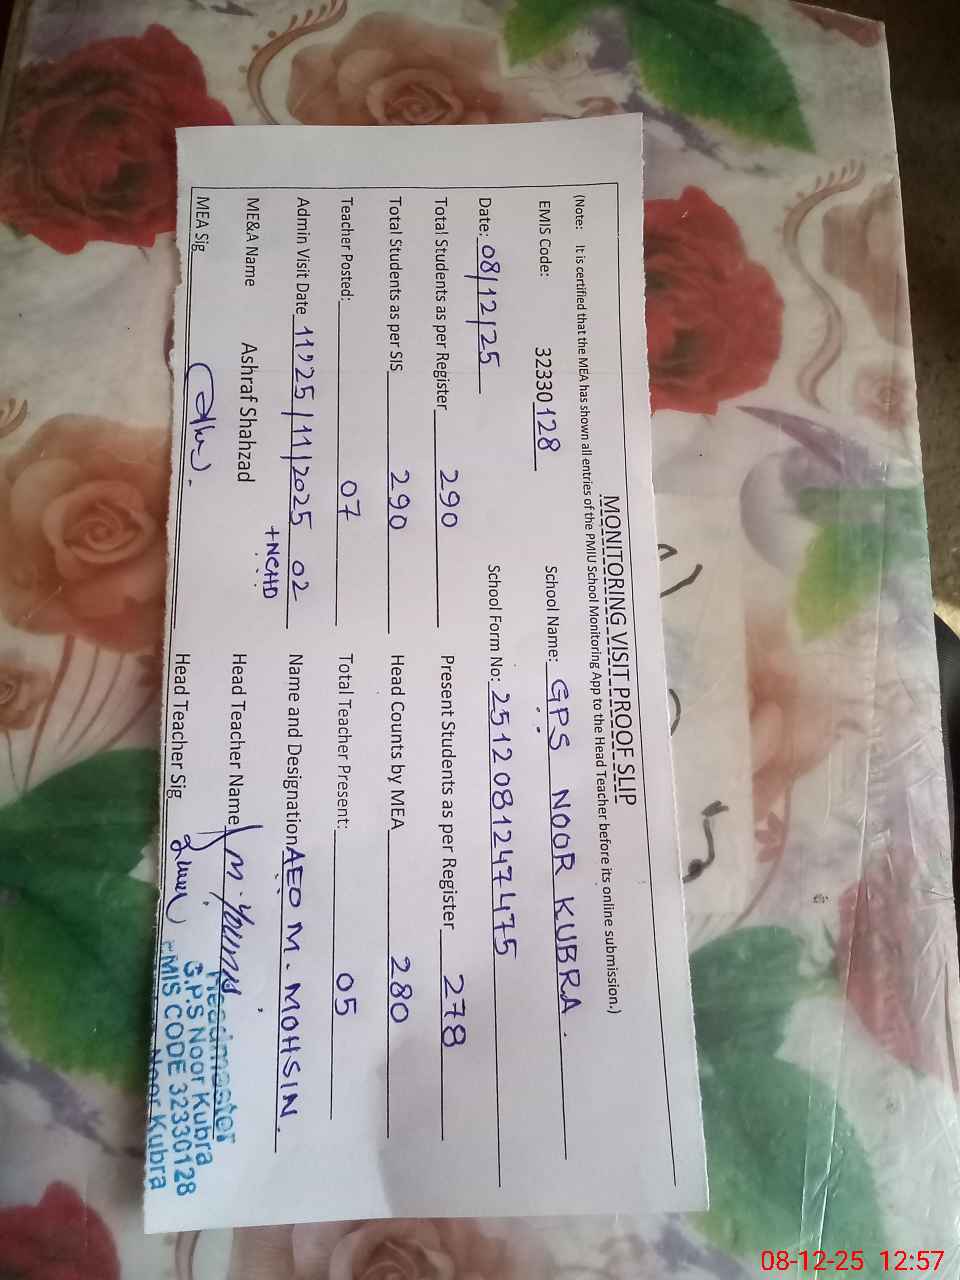 MONITORING VISIT PROOF SLIP
(Note: It is certified that the MEA has shown all entries of the PMIU School Monitoring App to the Head Teacher before its online submission.)
EMIS Code: 32330128 School Name: GPS NOOR KUBRA.
Date: 08/12/25 School Form No: 2512081247475
Total Students as per Register 290 Present Students as per Register 278
Total Students as per SIS 290 Head Counts by MEA 280
Teacher Posted: 07 Total Teacher Present: 05
Admin Visit Date 25/11/2025 02 Name and Designation AEO M. MOHSIN.
+NCHD
ME&A Name Ashraf Shahzad Head Teacher Name M. Younis
MEA Sig Head Teacher Sig
Headmaster
G.P.S Noor Kubra
EMIS CODE 32330128
Noor Kubra
08-12-25 12:57